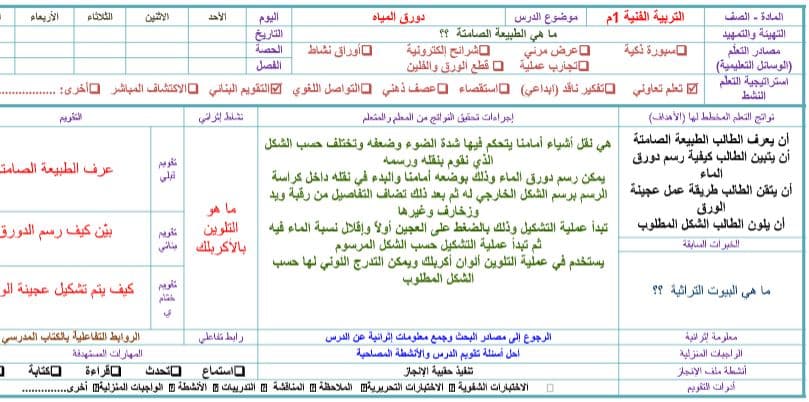 المادة - الصف
التربية الفنية 1م
موضوع الدرس
دورق المياه
اليوم
الأحد
الاثنين
الثلاثاء
الأربعاء
التهيئة والتمهيد
ما هي الطبيعة الصامتة ؟؟
التاريخ
مصادر التعلم
(الوسائل التعليمية)
☐سبورة ذكية
☐عرض مرئي
☐شرائح إلكترونية
☐أوراق نشاط
☐تجارب عملية
☐ قطع الورق والفلين
الحصة
الفصل
استراتيجية التعلم
النشط
☑ تعلم تعاوني ☐تفكير ناقد (ابداعي) ☐استقصاء ☐عصف ذهني ☐التواصل اللغوي ☑التقويم البنائي ☐الاكتشاف المباشر ☐أخرى: ..................
نواتج التعلم المخطط لها (الأهداف)
إجراءات تحقيق النواتج من المعلم والمتعلم
نشاط إثرائي
التقويم
أن يعرف الطالب الطبيعة الصامتة
أن يتبين الطالب كيفية رسم دورق
الماء
أن يتقن الطالب طريقة عمل عجينة
الورق
أن يلون الطالب الشكل المطلوب
الخبرات السابقة
ما هي البيوت التراثية ؟؟
هي نقل أشياء أمامنا يتحكم فيها شدة الضوء وضعفه وتختلف حسب الشكل
الذي نقوم بنقله ورسمه
يمكن رسم دورق الماء وذلك بوضعه أمامنا والبدء في نقله داخل كراسة
الرسم برسم الشكل الخارجي له ثم بعد ذلك تضاف التفاصيل من رقبة ويد
وزخارف وغيرها
تبدأ عملية التشكيل وذلك بالضغط على العجين أولاً وإقلال نسبة الماء فيه
ثم تبدأ عملية التشكيل حسب الشكل المرسوم
يستخدم في عملية التلوين ألوان أكريلك ويمكن التدرج اللوني لها حسب
الشكل المطلوب
ما هو
التلوين
بالأكريلك
تقويم
قبلي
عرف الطبيعة الصامت
تقويم
بنائي
بيّن كيف رسم الدورق
تقويم
ختام
ي
كيف يتم تشكيل عجينة الو
معلومة إثرائية
الرجوع إلى مصادر البحث وجمع معلومات إثرائية عن الدرس
رابط تفاعلي
الروابط التفاعلية بالكتاب المدرسي
الواجبات المنزلية
احل أسئلة تقويم الدرس والأنشطة المصاحبة
المهارات المستهدفة
أنشطة ملف الانجاز
تنفيذ حقيبة الإنجاز
☐استماع ☐تحدث ☐قراءة ☐كتابة
أدوات التقويم
☐ الاختبارات الشفوية ☐ الاختبارات التحريرية ☐ الملاحظة ☐ المناقشة ☐ التدريبات ☐ الأنشطة ☐ الواجبات المنزلية ☐ أخرى..............